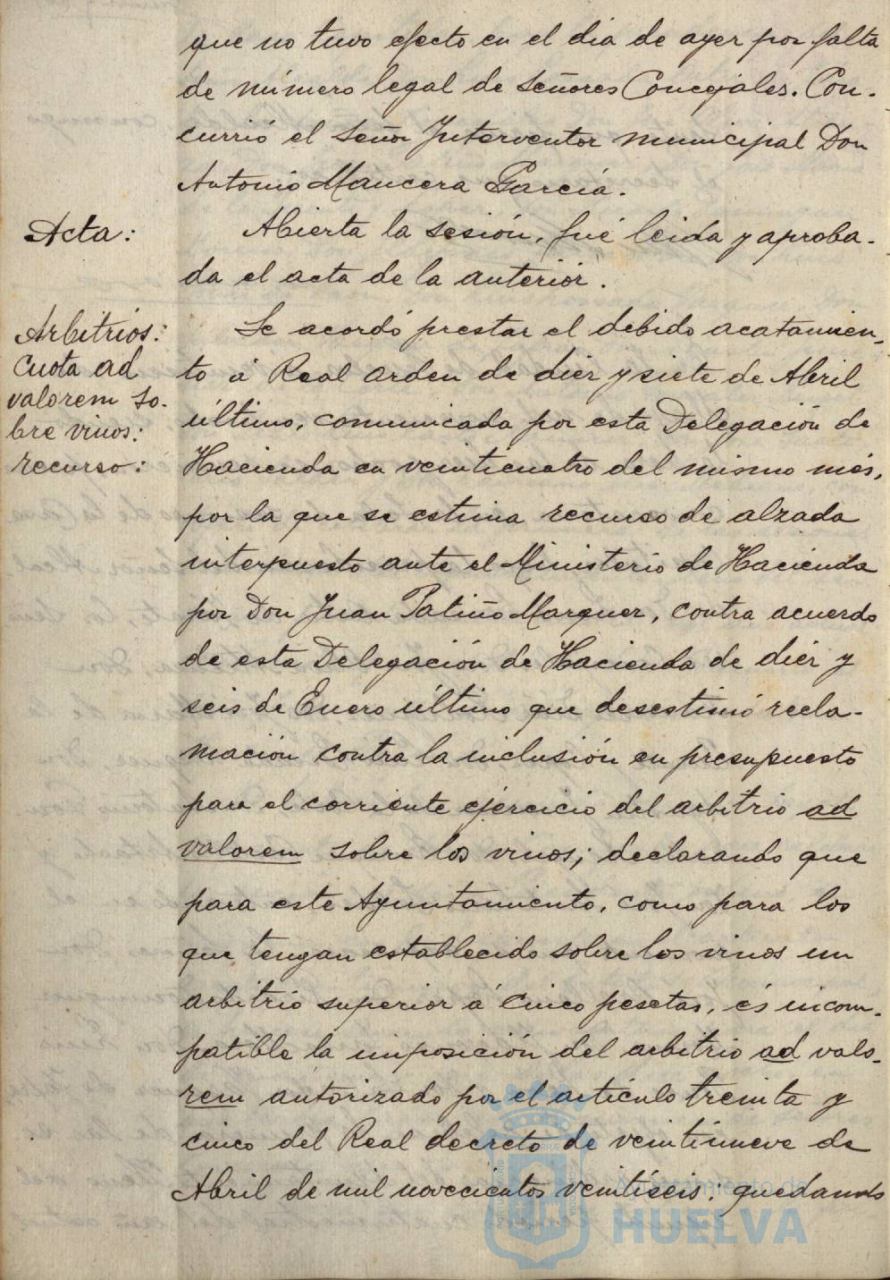 que no tuvo efecto en el dia de ayer por falta
de número legal de señores Concejales. Con-
currió el señor Interventor municipal Don
Antonio Mancera García.
Acta:
Abierta la sesión, fué leida y aproba-
da el acta de la anterior.
Arbitrios:
Cuota ad
valorem so-
bre vinos:
recurso:
Se acordó prestar el debido acatamien-
to á Real orden de diez y siete de Abril
último, comunicada por esta Delegación de
Hacienda en veinticuatro del mismo més,
por la que se estima recurso de alzada
interpuesto ante el Ministerio de Hacienda
por Don Juan Patiño Marquez, contra acuerdo
de esta Delegación de Hacienda de diéz y
seis de Enero último que desestimó recla-
mación contra la inclusión en presupuesto
para el corriente ejercicio del arbitrio ad
valorem sobre los vinos; declarando que
para este Ayuntamiento, como para los
que tengan establecido sobre los vinos un
arbitrio superior á cinco pesetas, és incom-
patible la imposición del arbitrio ad valo-
rem autorizado por el artículo treinta y
cinco del Real decreto de veintinueve de
Abril de mil novecientos veintiseis; quedando
Ayuntamiento de
HUELVA